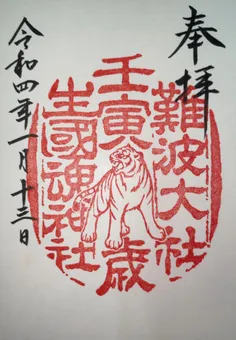 奉拝
難波大社
壬寅歳
生國魂神社
令和四年一月十三日